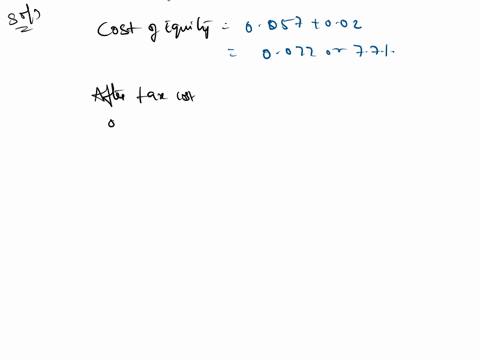 Sol)
Cost of Equity = 0.057 + 0.02
= 0.077 or 7.7%
After tax cost
o